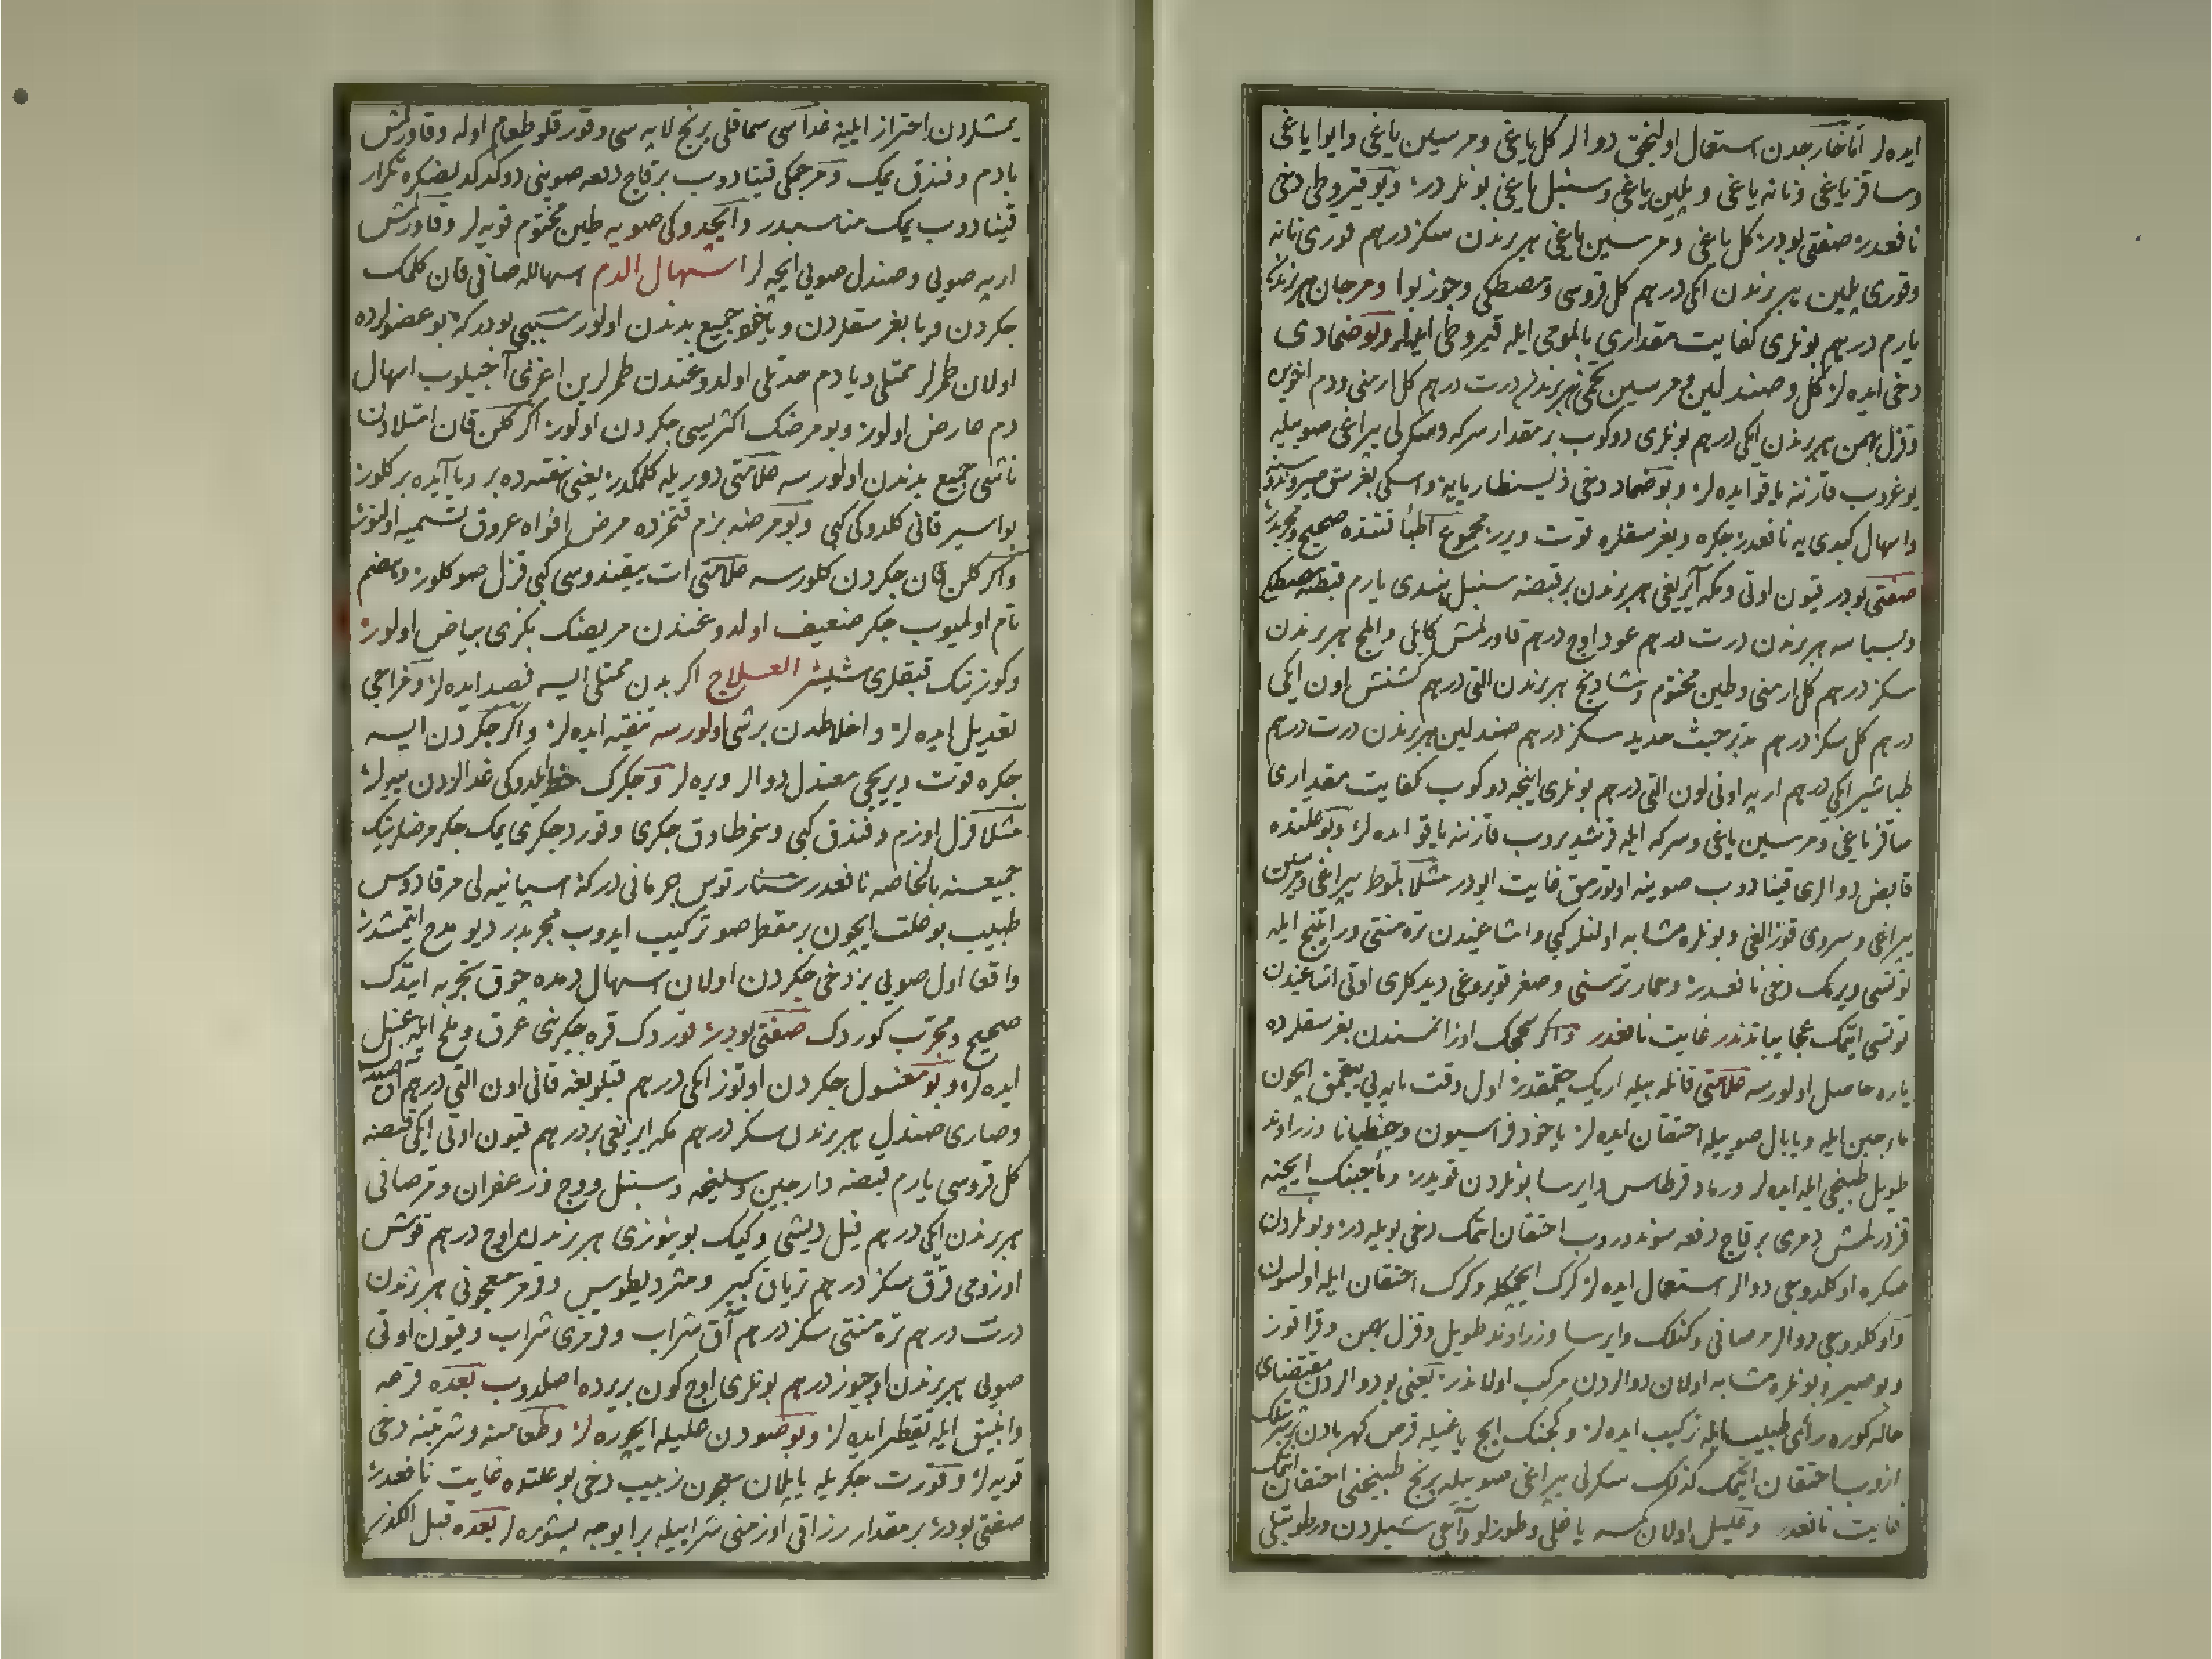 ایده لر اما خارجدن استعمال اولنجق دوالر کل یاغی و مرسین یاغی و ایوا یاغی
و ساقز یاغی و نانه یاغی و پلین یاغی و سنبل یاغی بونلردر و بو قیروطی دخی
نافعدر صفتی بودر کل یاغی و مرسین یاغی هر برندن سکز درهم قوری نانه
و قوری پلین هر برندن ایکی درهم کل قروسی و مصطکی و جوز بوا و مرجان هر برندن
یارم درهم بونلری کفایت مقداری بالمومی ایله قیروطی ایده لر و بو ضمادی
دخی ایده لر کل و صندلین و مرسین تخمی هر برندن درت درهم کل ارمنی و دم اخوین
و قزل بهمن هر برندن ایکی درهم بونلری دوکوب بر مقدار سرکه و سکرلی پپراغی صوییله
یوغروب قارننه یاقو ایده لر و بو ضماد دخی ذیسنطاریایه و اسکی بغرسق
و اسهال کبدی یه نافعدر جکره و بغرسقلره قوت ویرر مجموع اطبا قتنده صحیح و مجربدر
صفتی بودر قیون اوتی و مکه آیریغی هر برندن بر قبضه سنبل هندی یارم قبضه مصطکی
و بسباسه هر برندن درت درهم عود اوچ درهم قاورلمش کابلی و املج هر برندن
سکز درهم کل ارمنی و طین مختوم و شادنج هر برندن التی درهم کشنش اون ایکی
درهم کل سکز درهم مدبر خبث حدید سکز درهم صندلین هر برندن درت درهم
طباشیر ایکی درهم ارپه اونی اون التی درهم بونلری اینجه دوکوب کفایت مقداری
ساقز یاغی و مرسین یاغی و سرکه ایله قرشدیروب قارننه یاقو ایده لر و بو علتده
قابض دوالری قیناددوب صوینه اوتورمق غایت ایودر مثلا بلوط پپراغی و مرسین
پپراغی و سروی قوزالغی و بونلره مشابه اولنلر کبی و اشاغیندن تره منتی و راتینج ایله
توتسی ویرمک دخی نافعدر و حمار ترسنی و صغر قویروغی دیدکلری اوتی اشاغیندن
توتسی ایتمک عجایباتدندر غایت نافعدر و اکر سحجک اوزانمسندن بغرسقلرده
یاره حاصل اولورسه علامتی قانله بیله ایرک چقمقدر اول وقت یاره یی ییقمق ایچون
ماء جبن ایله و یا بال صوییله احتقان ایده لر یاخود فراسیون و جنطیانا و زراوند
طویل طبیخی ایله ایده لر و رماد قرطاس و ایرسا بونلردن قویدر و ماء جبنک ایچینه
قزدرلمش دمری بر قاچ دفعه سوندوروب احتقان ایتمک دخی بویله در و بونلردن
صکره اوکلدوجی دوالر استعمال ایده لر کرک ایچمکله و کرک احتقان ایله اولسون
و اوکلدوجی دوالر مرصافی و کنلک و ایرسا و زراوند طویل و قزل بهمن و قرانفوز
و بو صبر و بونلره مشابه اولان دوالردن مرکب اولانلردر یعنی بو دوالردن مقتضای
حاله کوره رأی طبیب ایله ترکیب ایده لر و کچنک ایچ یاغیله قرص کهربادن
ازوب احتقان ایتمک کذلک سکرلی پپراغی صوییله برنج طبیخنی احتقان ایتمک
غایت نافعدر و علیل اولان کمسه یاغلی و طوزلو و آجی شیلردن و رطوبتلی
یمشلردن احتراز ایلیه غداسی سماقلی برنج لاپه سی و قورقلو طعام اوله و قاورلمش
بادم و فندق یمک و مرجمکی قیناددوب بر قاچ دفعه صوینی دوکدکد نصکره تکرار
قیناددوب یمک مناسبدر و ایچدوکی صویه طین مختوم قویه لر و قاورلمش
ارپه صویی و صندل صویی ایچه لر اسهال الدم اسهالله صافی قان کلمک
جکردن و یا بغرسقلردن و یاخود جمیع بدندن اولور سببی بودر که بو عضولرده
اولان طمرلر ممتلی و یا دم حدتلی اولدوغندن طمرلرین اغزی آچیلوب اسهال
دم عارض اولور و بو مرضک اکثریسی جکردن اولور اکر کلن قان امتلادن
ناشی جمیع بدندن اولورسه علامتی دوریله کلمکدر یعنی هفته ده بر و یا آیده بر کلور
بواسیر قانی کلدوکی کبی و بو مرضه بزم قتمزده مرض افواه عروق تسمیه اولنور
و اکر کلن قان جکردن کلورسه علامتی ات ییقندوسی کبی قزل صو کلور و هضم
تام اولمیوب جکر ضعیف اولدوغندن مریضک بکزی بیاض اولور
و کوزینک قپقلری شیشر العلاج اکر بدن ممتلی ایسه فصد ایده لر و مزاجی
تعدیل ایده لر و اخلاطدن بر شی اولورسه تنقیه ایده لر و اکر جکردن ایسه
جکره قوت ویریجی معتدل دوالر ویره لر و جکرک حظ ایلدوکی غدالردن ییه لر
مثلا قزل اوزم و فندق کبی و سمز طاوق جکری و قورد جکری یمک جکر مرضلرینک
جمیعسنه بالخاصه نافعدر سنارتوس جرمانی درکه اسپانیه لی مرقادوس
طبیب بو علت ایچون بر مقطر صو ترکیب ایدوب مجربدر دیو مدح ایتمشدر
واقعا اول صویی بز دخی جکردن اولان اسهال دمده چوق تجربه ایتدک
صحیح و مجرب کوردک صفتی بودر اوردک قره جکرینی عرق و ملح ایله غسل
ایده لر و بو مغسول جکردن اوتوز ایکی درهم قپلوبغه قانی اون التی درهم آق
و صاری صندل هر برندن سکز درهم مکه ایریغی بر درهم قیون اوتی ایکی قبضه
کل قروسی یارم قبضه دارچین و سلیخه و سنبل و وج و زعفران و مرصافی
هر برندن ایکی درهم فیل دیشی و کیک بوینوزی هر برندن اوچ درهم قوش
اوزومی قرق سکز درهم تریاق کبیر و مثرودیطوس و قرمز معجونی هر برندن
درت درهم تره منتی سکز درهم آق شراب و قرمزی شراب و قیون اوتی
صویی هر برندن اوچیوز درهم بونلری اوچ کون بر یرده اصلدوب بعده قرعه
و انبیق ایله تقطیر ایده لر و بو صودن علیله ایچوره لر و طعامنه و شربتنه دخی
قویه لر و قورت جکریله یاپلان معجون زبیب دخی بو علتده غایت نافعدر
صفتی بودر بر مقدار رزاقی اوزمنی شرابیله بر ایوجه پیشوره لر بعده قبل الکذر